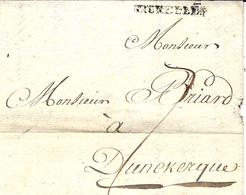 BRUXELLES
Monsieur
Monsieur Briard
à
Dunekerque